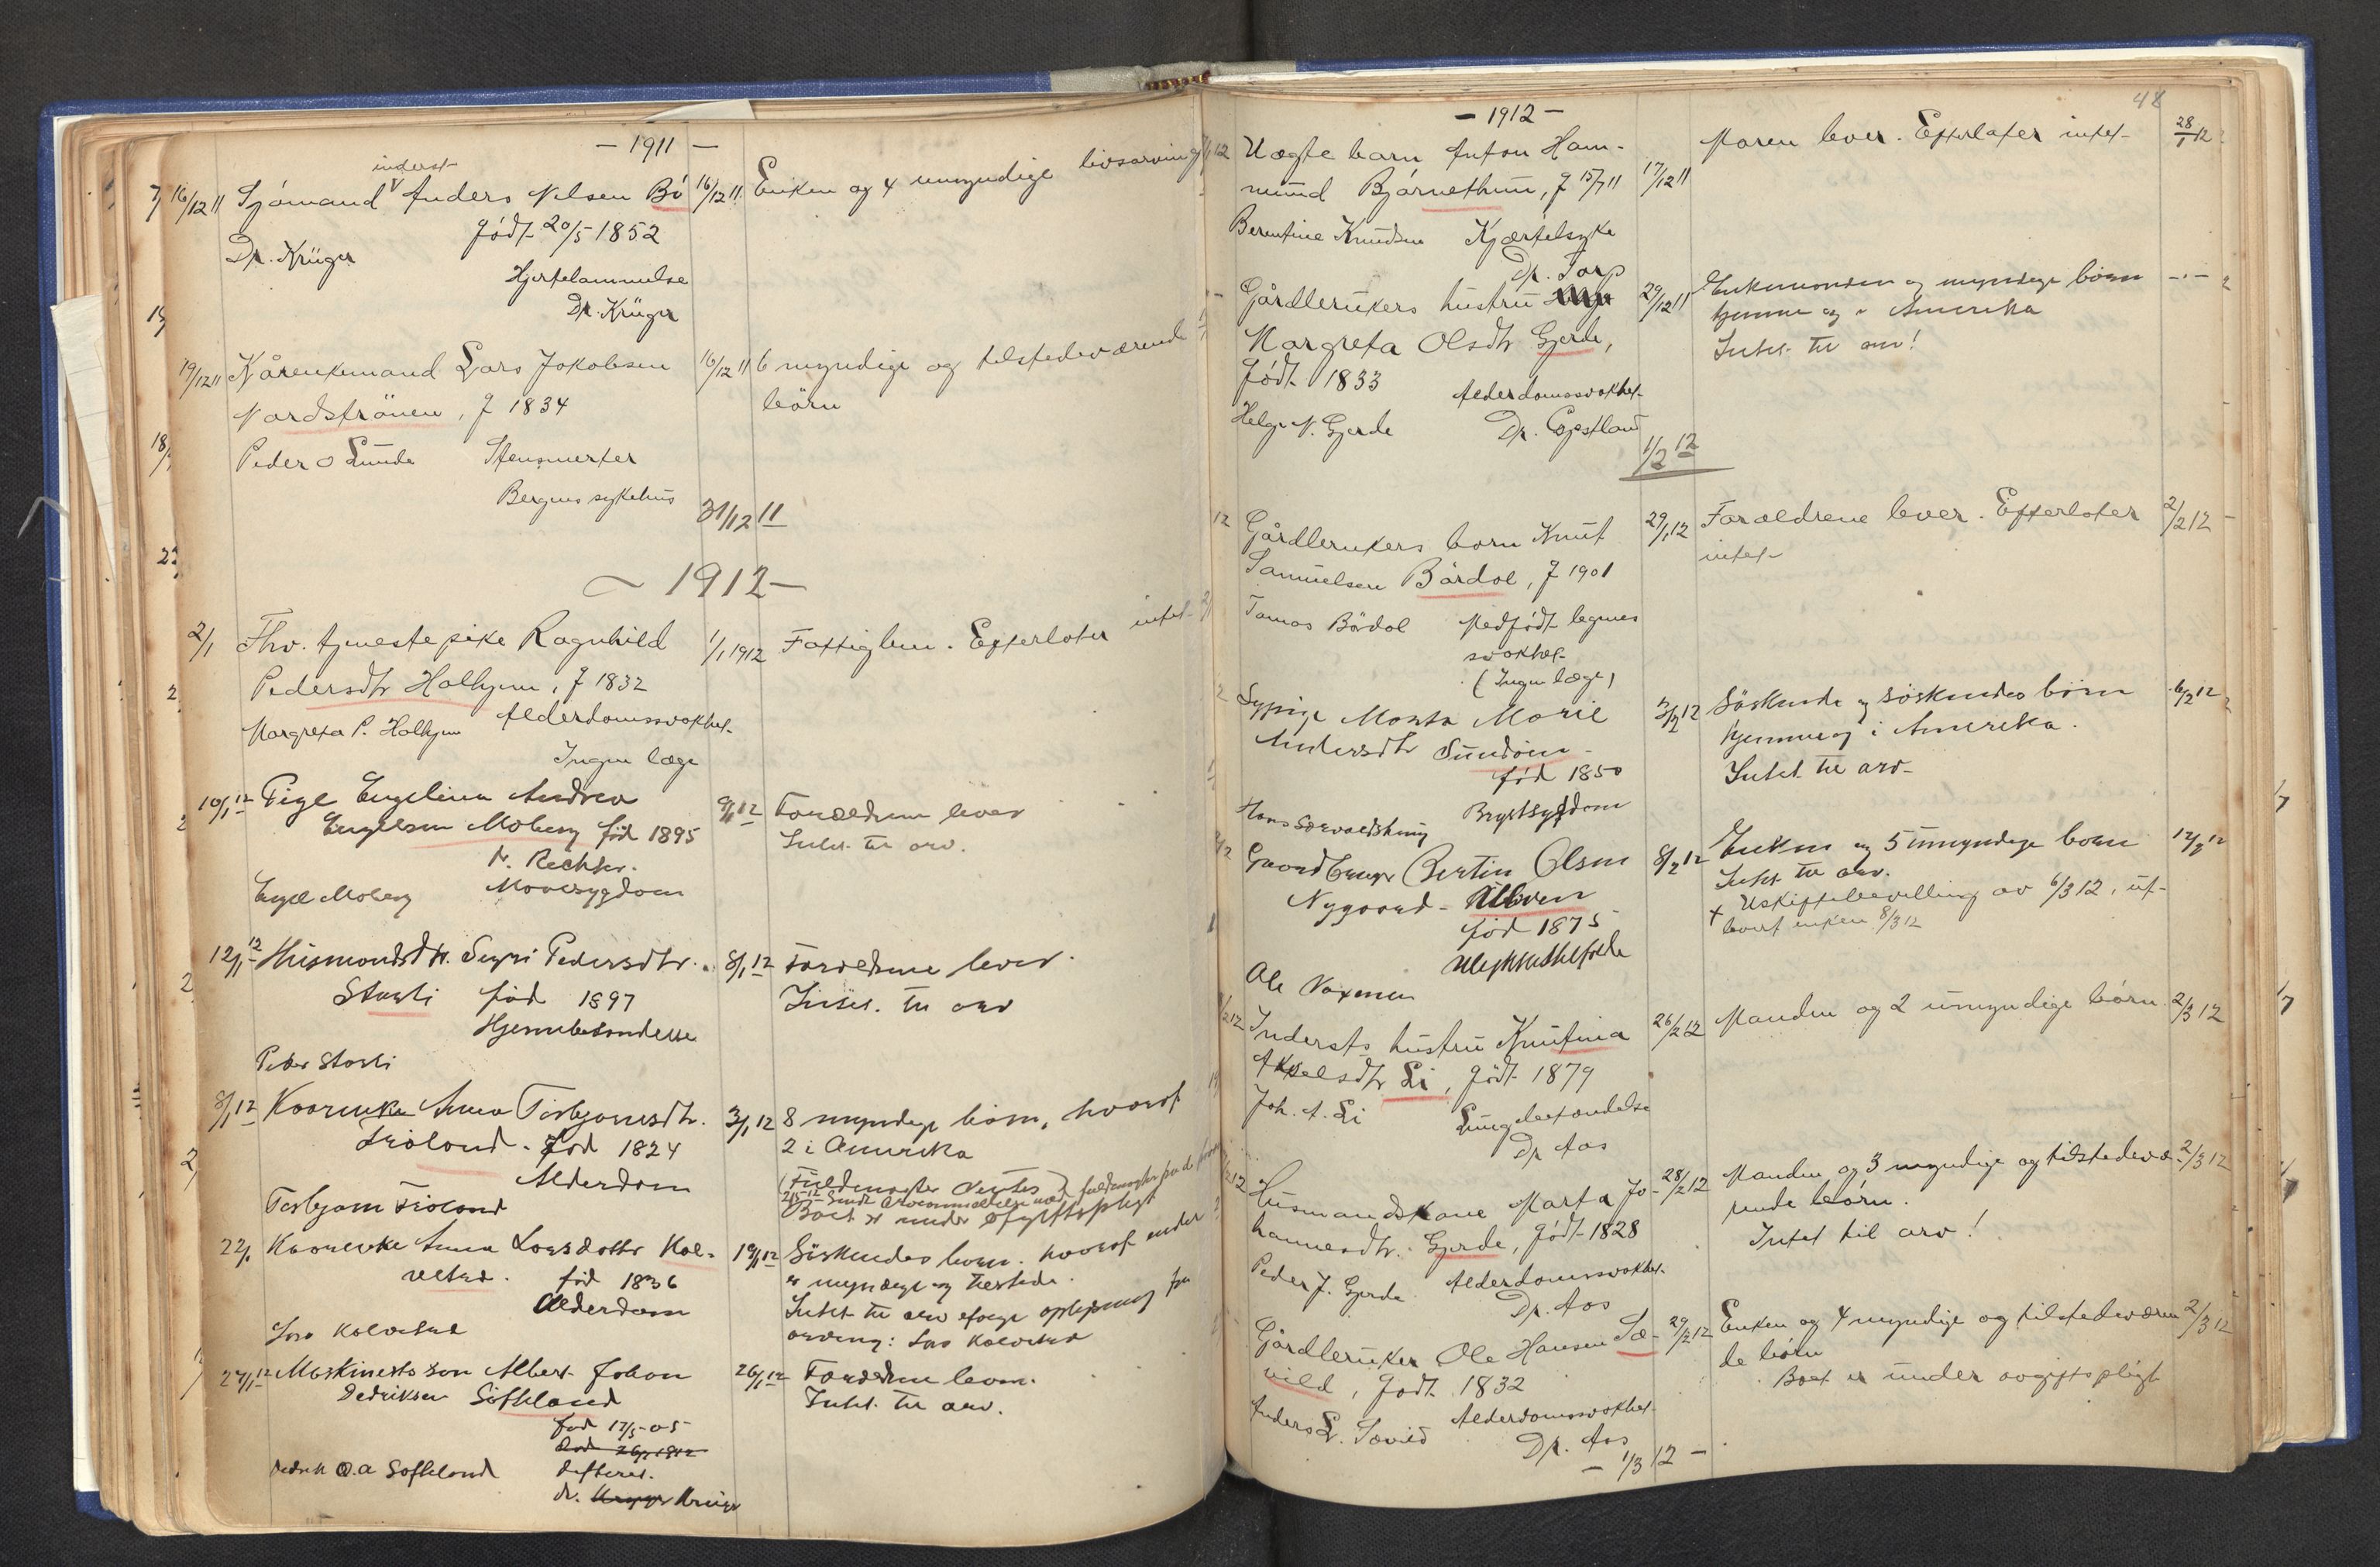 - 1911 -
inderst
16/12 11 Sjömand Anders Nilsen Bö 16/12 11 Enken og 4 umyndige livsarving
født 20/5 1852
Dr. Krüger
Hjertelammelse
Dr. Krüger
19/12 11 Kårenkemand Lars Jakobsen 16/12 11 6 myndige og tilstedeværende
Nordströnen, f 1834 børn
Peder O Lunde Stensmerter
Bergens sykehus
31/12 11
- 1912 -
2/1 Fhv. tjenestepike Ragnhild 1/1 1912 Fattiglem. Efterlater intet
Pedersdtr Holhjem, f 1832
Margreta P. Holhjem Alderdomssvakhet
Ingen læge
10/1 12 Pige Engelina Andrea 9/1 12 Forældrene lever
Engelsen Moberg född 1895 Intet til arv.
Engel Moberg Mavesygdom
12/1 12 Husmandsdtr. Sygni Pedersdtr. 8/1 12 Forældrene lever.
Storli född 1897 Intet til arv
Hjernebetændelse
Peder Storli
8/1 12 Kaarenke Anna Torbjørnsdtr. 3/1 12 8 myndige börn, hvoraf
född 1824 2 i Amerika
Alderdom
(Fuldmagter ventes)
Boet er under afgiftspligt
22/1 Kaarenke Anna Larsdatter Kol- 19/1 12 Söskendes börn, hvoraf
vetved. född 1836 er myndige og tilstede.
Alderdom Intet til arv ifølge oplysning fra
Lars Kolvetved arving: Lars Kolvetved
27/1 12 Maskinests son Albert Johan 26/1 12 Forældrene lever.
Dedriksen Softeland Intet til arv.
fød 17/5-05
Dedrik O.A Softeland difteri.
dr. Krüger
48
- 1912 -
Uægte barn Anton Ham- 17/12 11 Moren lever. Efterlater intet 28/1 12
mund Bjørnethun, f 15/7 11
Berentine Knudsen Kjærtelsyke
Dr. Torp
Gårdbrukers hustru 29/12 11 Enkemanden og myndige børn - " -
Margreta Olsdtr Gjerde, hjemme og i Amerika
født 1833 Alderdomssvakhet Intet til arv!
Helge N. Gjerde Dr.
1/2 12
Gårdbrukers barn Knut 29/1 12 Forældrene lever. Efterlater 2/2 12
Samuelsen Bårdal, f 1901 intet
Tomas Bårdal Medfødt legems
svakhet
(Ingen læge)
Sypige Marta Marie 3/2 12 Söskende og söskendes börn 6/2 12
Andersdtr Sundöen hjemme og i Amerika.
född 1850 Intet til arv
Brystsygdom
Gaardbruger Bertin Olsen 8/2 12 Enken og 5 umyndige börn 12/2 12
Nygaard - Intet til arv.
född 1875 x Uskiftebevilling av 6/3 12, ut-
levert enken 8/3 12
Ole
Indersts hustru Knutina 26/2 12 Manden og 2 umyndige børn 2/3 12
Akselsdtr Li, født 1879
Joh. A. Li Lungebetændelse
Dr Aas
Husmandskone Marta Jo- 28/2 12 Manden og 3 myndige og tilstedevæ- 2/3 12
hannesdtr. Gjerde, født 1828 rende børn.
Peder J. Gjerde Alderdomssvakhet Intet til arv!
Dr. Aas
Gårdbruker Ole Hansen Sæ- 29/2 12 Enken og 4 myndige og tilstedeværen- 2/3 12
vild, født 1832 de børn
Anders L. Sævild Alderdomssvakhet Boet er under avgiftspligt
Dr. Aas
- 1/3 12 -